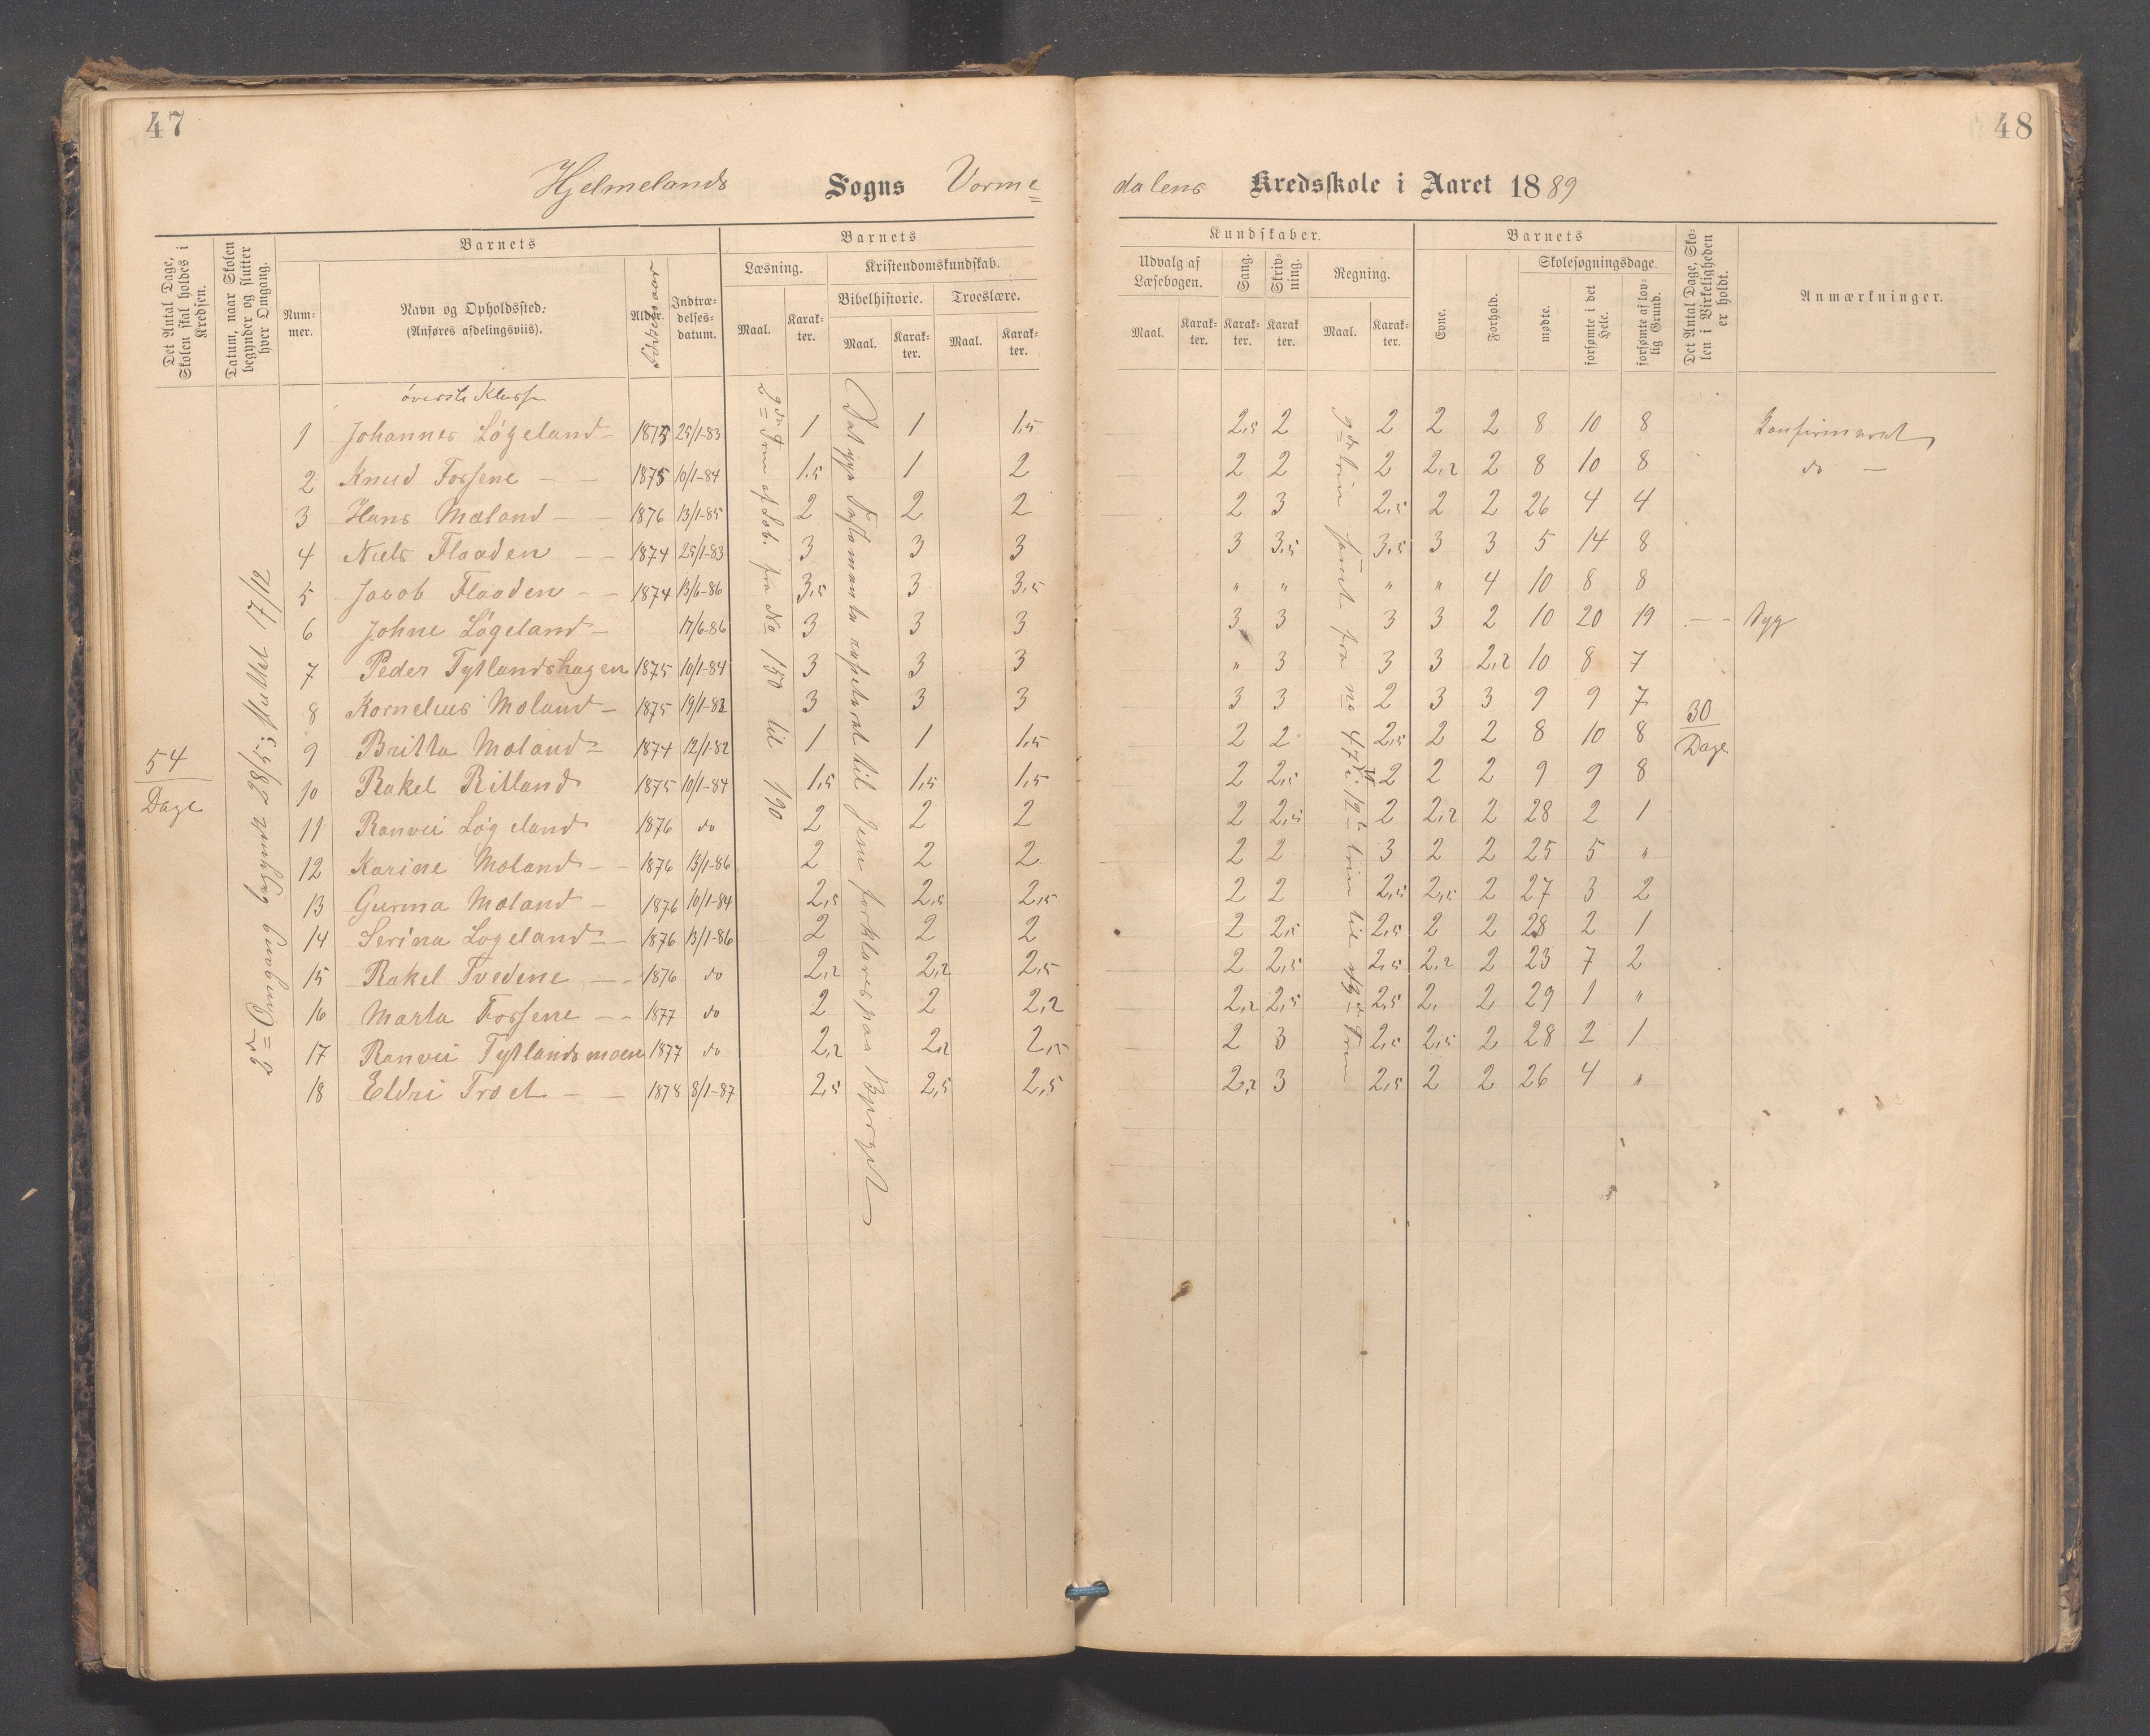 47
48
Hjelmelands Sogns Vorme=
dalens Kredsskole i Aaret 1889
Det Antal Dage, Skolen skal holdes i Kredsen.
Datum, naar Skolen begynder og slutter hver Omgang.
Barnets
Num-mer.
Navn og Opholdssted:
(Anføres afdelingsviis).
Alder.
Fødselsaar
Indtræ-delses-datum.
Barnets
Læsning.
Maal.
Karak-ter.
Kristendomskundskab.
Bibelhistorie.
Maal.
Karak-ter.
Troeslære.
Maal.
Karak-ter.
Kundskaber.
Udvalg af Læsebogen.
Maal.
Karak-ter.
Sang.
Karak-ter.
Skriv-ning.
Karak-ter.
Regning.
Maal.
Karak-ter.
Barnets
Evne.
Forhold.
Skolesøgningsdage.
mødte.
forsømte i det Hele.
forsømte af lov-lig Grund.
Det Antal Dage, Sko-len i Virkeligheden er holdt.
Anmærkninger.
54
Dage
2den Omgang begynder 28/5; sluttet 17/12
til 190
fra No 150
til Jesu forklares paa Bjerget
øverste Klasse
1 Johannes Løgeland - 1875 25/1-83 1 1 1,5 2,5 2 2 2 2 8 10 8 Konfirmeret
2 Knud Forsene - - 1875 10/1-84 1,5 1 2 2 2 2 2,2 2 8 10 8 do -
3 Hans Mæland - - 1876 13/1-85 2 2 2 2 3 2,5 2 2 26 4 4
4 Niels Flaaden - - 1874 25/1-83 3 3 3 3 3,5 3,5 3 3 5 14 8
5 Jacob Flaaden - - 1874 13/6-86 3,5 3 3,5 " " " " 4 10 8 8
6 Johne Løgeland - 17/6-86 3 3 3 3 3 3 3 2 10 20 19 Syg
7 Peder Tytlandshagen 1875 10/1-84 3 3 3 " 3 3 3 2,2 10 8 7
8 Kornelius Mæland - 1875 19/1-82 3 3 3 3 3 2 3 3 9 9 7
30
Dage
9 Britta Mæland - 1874 12/1-82 1 1 1,5 2 2 2,5 2 2 8 10 8
10 Rakel Ritland 1875 10/1-84 1,5 1,5 1,5 2 2,5 2 2 2 9 9 8
11 Ranvei Løgeland 1876 do 2 2 2 2 2,5 2 2,2 2 28 2 1
12 Karine Mæland - - 1876 13/1-86 2 2 2 2 2 3 2 2 25 5 "
13 Gurina Mæland - 1876 10/1-84 2,5 2,5 2,5 2 2 2,5 2,5 2 27 3 2
14 Serina Løgeland - 1876 13/1-86 2 2 2 2 2,5 2,5 2 2 28 2 1
15 Rakel Tvedene - - 1876 do 2,2 2,2 2,5 2 2,5 2,5 2,2 2 23 7 2
16 Marta Forsene - - 1877 do 2 2 2,2 2,2 2,5 2,5 2, 2 29 1 "
17 Ranvei Tytlandsmoen 1877 do 2,2 2,2 2,5 2 3 2,5 2,5 2 28 2 1
18 Eldri Trøet - - 1878 8/1-87 2,5 2,5 2,5 2,2 3 2,5 2 2 26 4 "